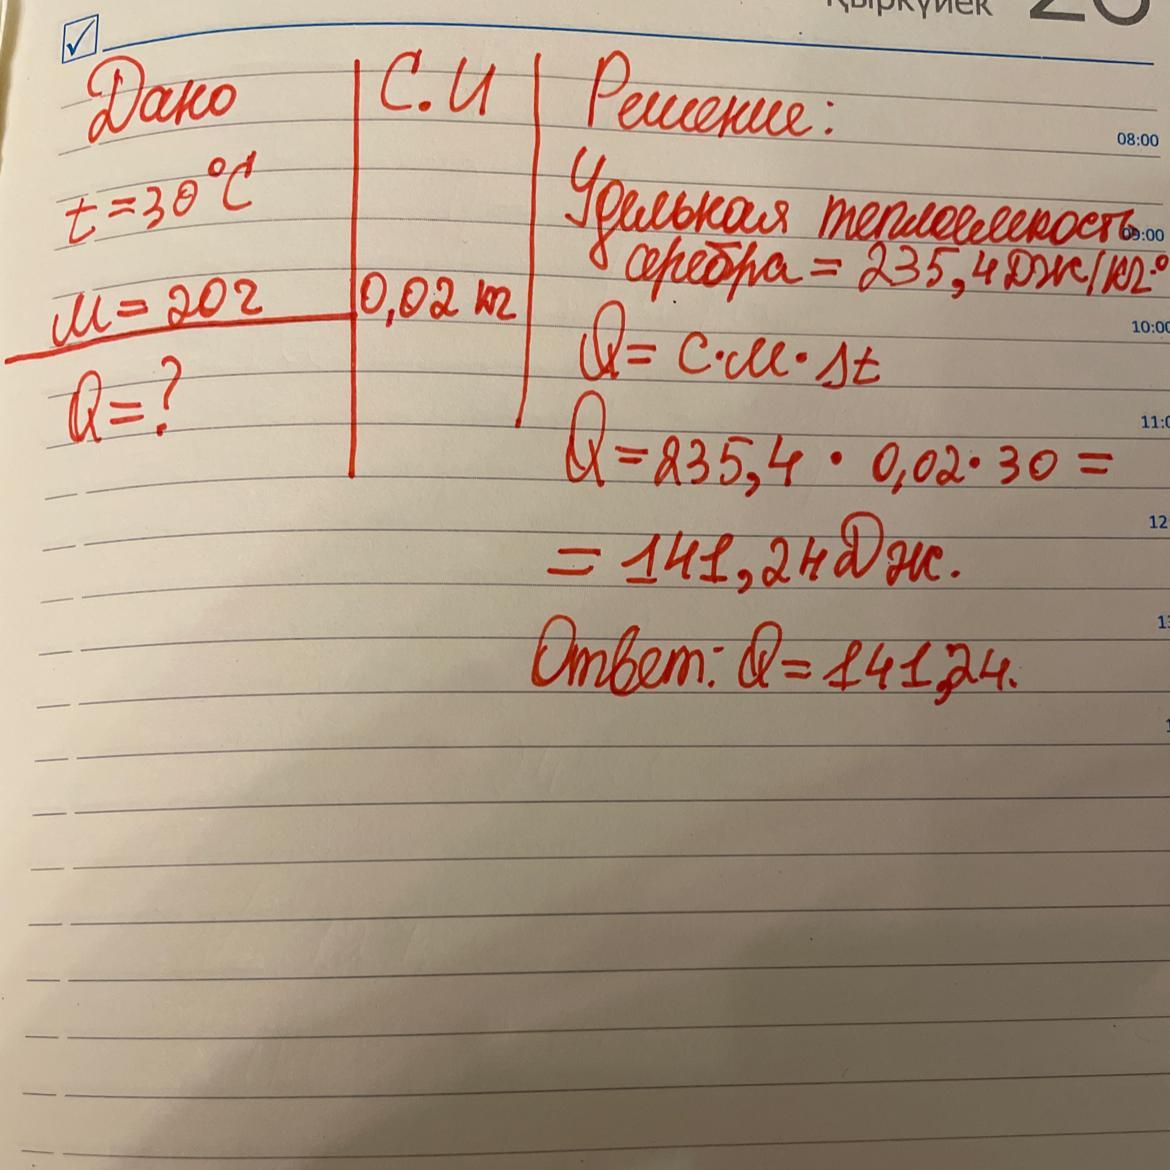 Қыркүйек 20
Дано
С.И
Решение:
08:00
t=30°C
Удельная теплоемкость
09:00
серебра = 235,4 Дж/кг·°
m=20г
0,02 кг
10:00
Q= c·m·Δt
Q=?
11:0
Q=235,4 · 0,02·30 =
12
= 141,24 Дж.
13
Ответ: Q=141,24.
1